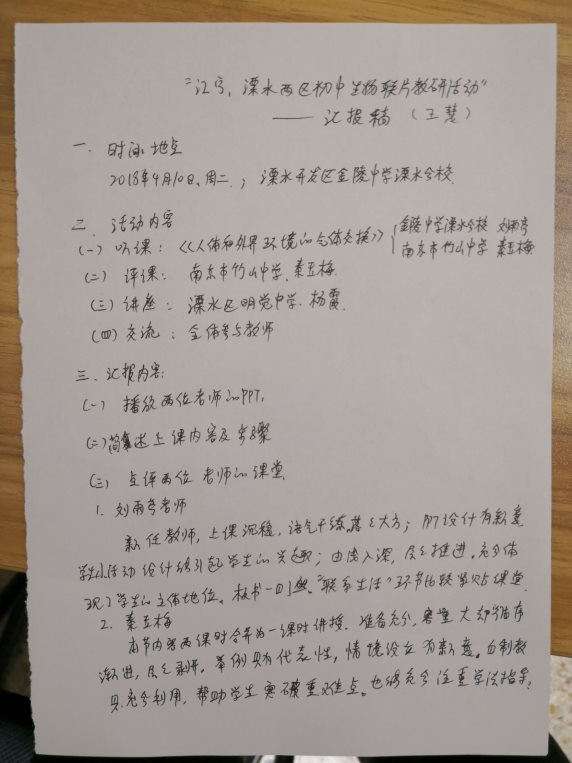 “江宁、溧水两区初中生物联片教研活动”
——汇报稿（王慧）
一、时间、地点
2018年4月10日、周二；溧水开发区金陵中学溧水分校
二、活动内容
（一）听课：《人体和外界环境的气体交换》 金陵中学溧水分校 刘雨亭
南京市竹山中学 秦玉梅
（二）评课：南京市竹山中学、秦玉梅
（三）讲座：溧水区明觉中学、杨霞
（四）交流：全体参与教师
三、汇报内容：
（一）播放两位老师的PPT。
（二）简述上课内容及步骤
（三）点评两位老师的课堂
1. 刘雨亭老师
新任教师，上课沉稳，语气干练，落落大方；设计有新意
学生活动设计能引起学生的兴趣；由浅入深，层层推进。充分体
现了学生的主体地位。板书一目了然。“联系生活”环节比较贴近课堂
2. 秦玉梅
本节内容两课时合并为一课时讲授。准备充分，课堂大部分循序
渐进，层层剥开。举例具有代表性，情境设立有新意。自制教
具充分利用，帮助学生突破重难点。也能充分注重学法指导。